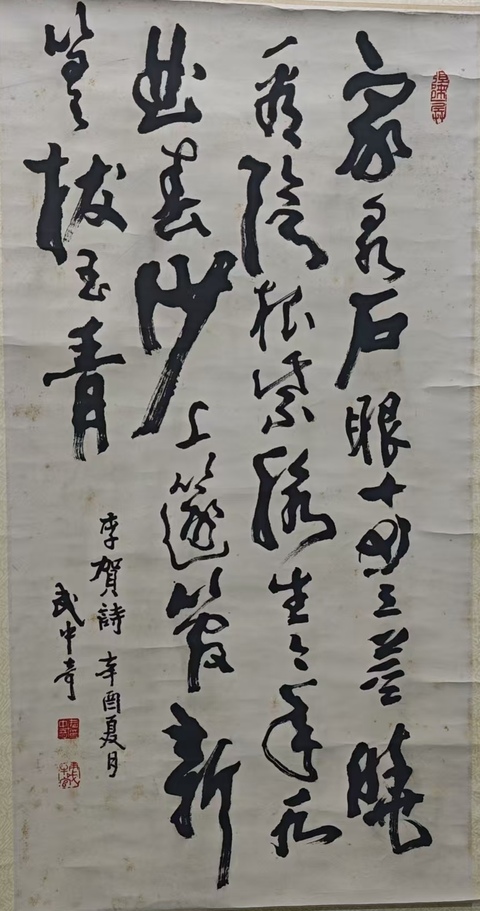 家泉石眼两三莖曉
看陰根紫脈生今年水
曲春沙上篴管新
篁拔玉青
李賀詩 辛酉夏月
武中奇